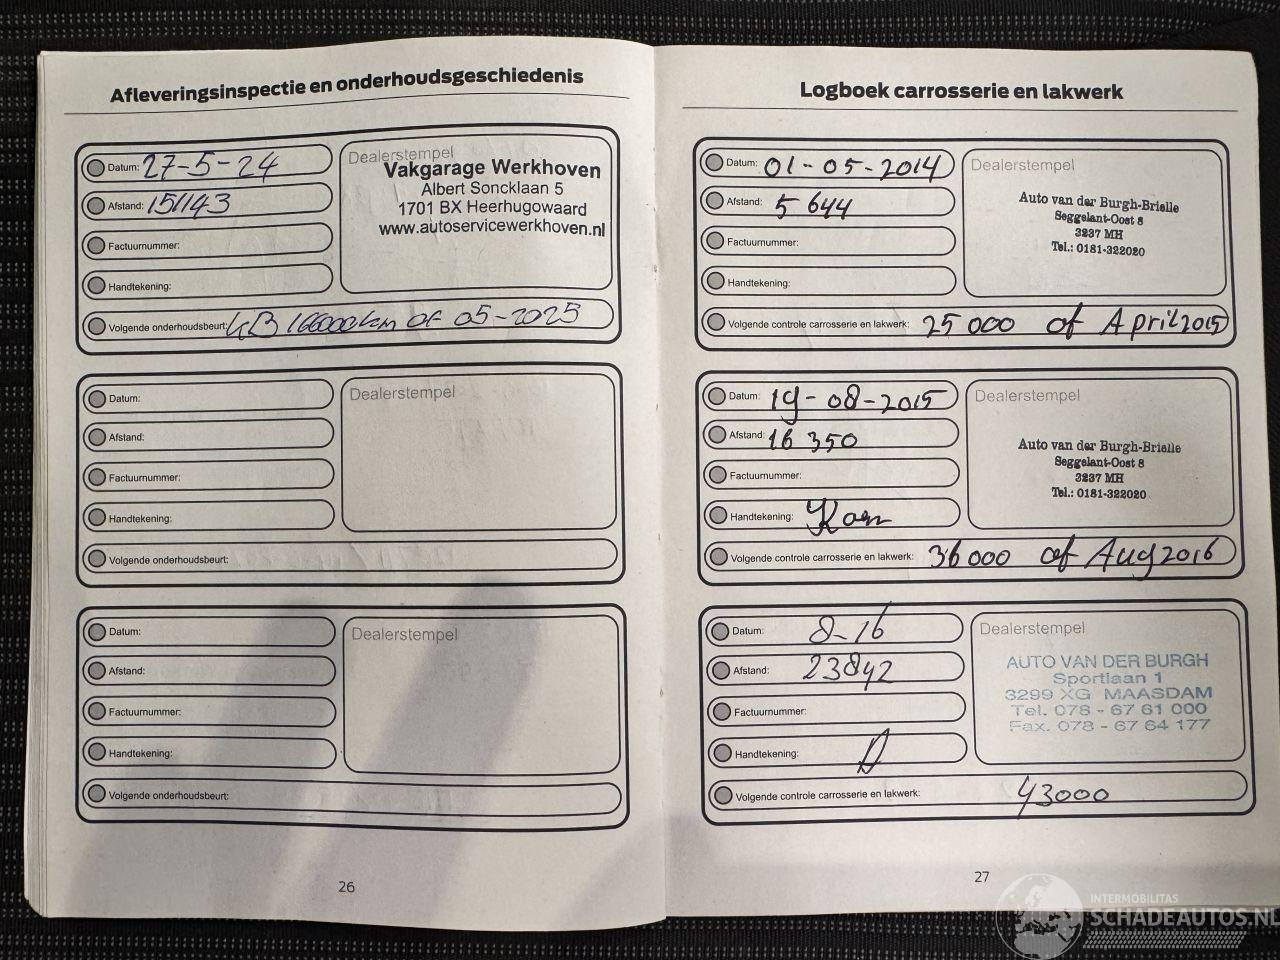 Afleveringsinspectie en onderhoudsgeschiedenis
Datum: 27-5-24
Afstand: 151143
Factuurnummer:
Handtekening:
Dealerstempel
Vakgarage Werkhoven
Albert Soncklaan 5
1701 BX Heerhugowaard
www.autoservicewerkhoven.nl
Volgende onderhoudsbeurt: 166000km OF 05-2025
Datum:
Afstand:
Factuurnummer:
Handtekening:
Dealerstempel
Volgende onderhoudsbeurt:
Datum:
Afstand:
Factuurnummer:
Handtekening:
Dealerstempel
Volgende onderhoudsbeurt:
26
Logboek carrosserie en lakwerk
Datum: 01-05-2014
Afstand: 5 644
Factuurnummer:
Handtekening:
Dealerstempel
Auto van der Burgh-Brielle
Seggelant-Oost 8
3237 MH
Tel.: 0181-322020
Volgende controle carrosserie en lakwerk: 25 000 of April 2015
Datum: 19-08-2015
Afstand: 16 350
Factuurnummer:
Handtekening:
Dealerstempel
Auto van der Burgh-Brielle
Seggelant-Oost 8
3237 MH
Tel.: 0181-322020
Volgende controle carrosserie en lakwerk: 36 000 of Aug 2016
Datum: 8-16
Afstand: 23842
Factuurnummer:
Handtekening:
Dealerstempel
AUTO VAN DER BURGH
Sportlaan 1
3299 XG MAASDAM
Tel. 078 - 67 61 000
Fax. 078 - 67 64 177
Volgende controle carrosserie en lakwerk: 43000
27
INTERMOBILITAS
SCHADEAUTOS.NL